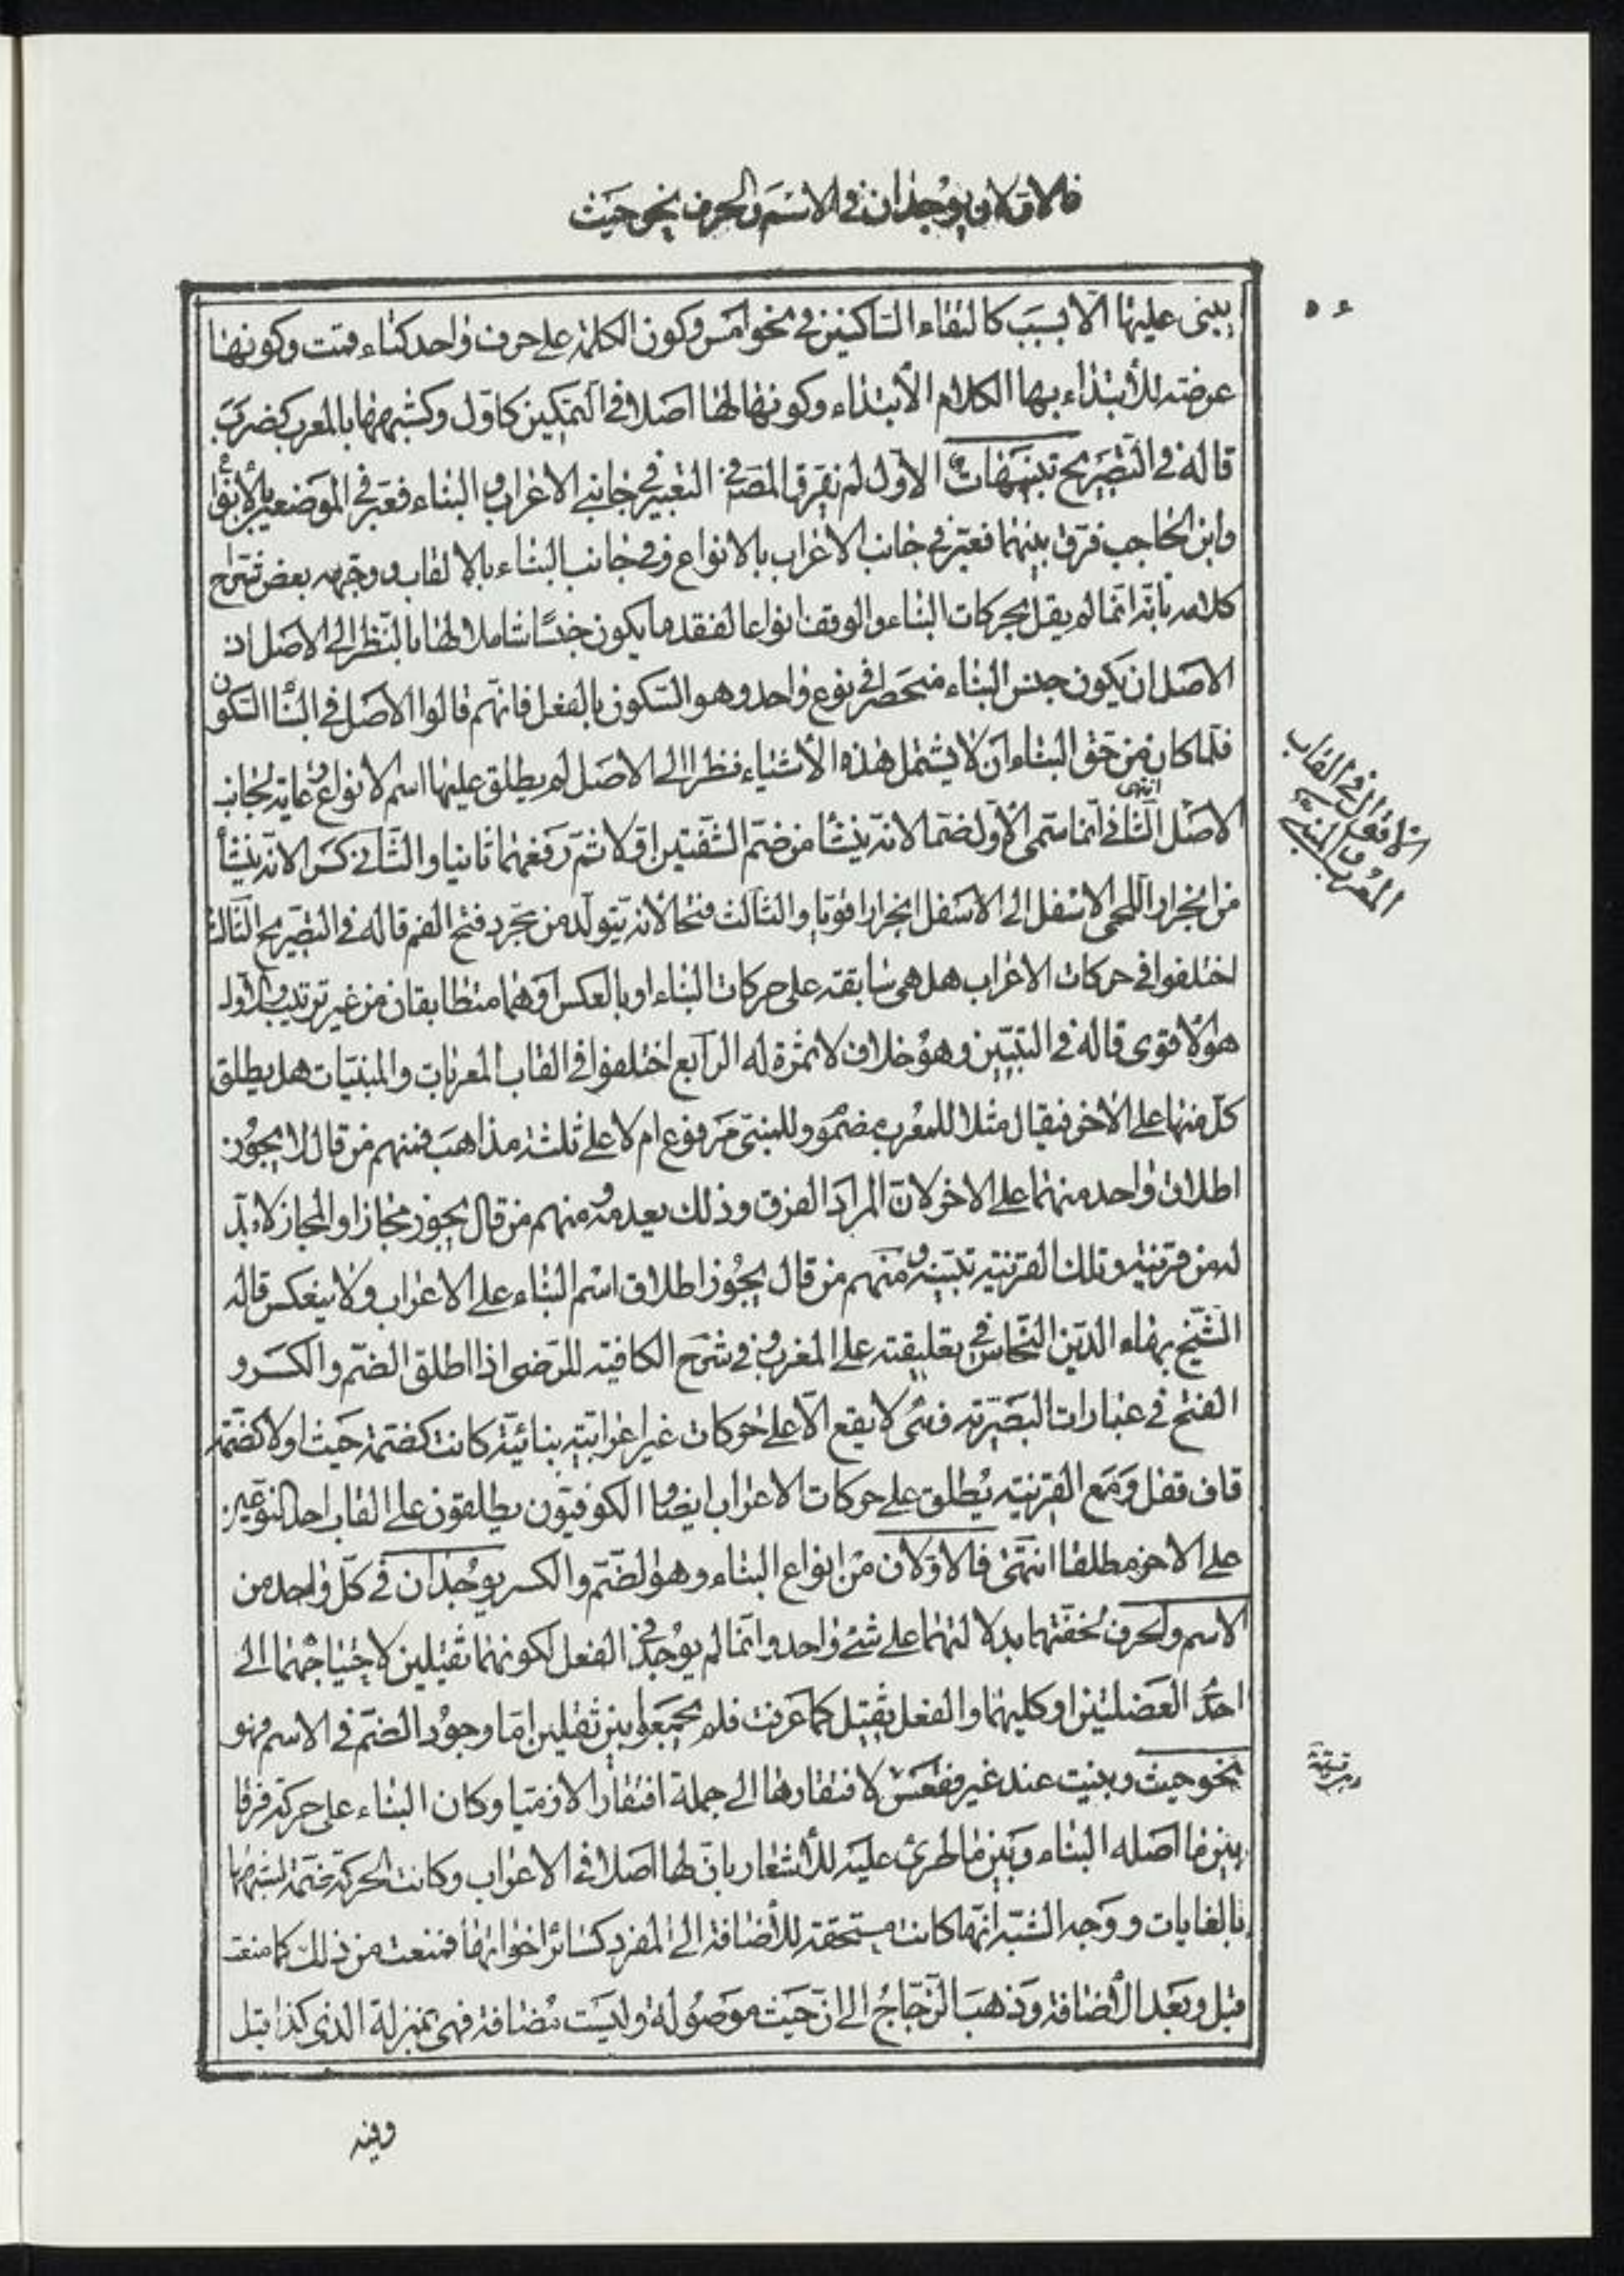 فالاولان يوجدان في الاسم والحرف نحو حيث
يبنى عليها الا بسبب كالتقاء الساكنين في نحو امس وكون الكلمة على حرف واحد كتاء قمت وكونها
عرضة للابتداء بها الكلام الابتداء وكونها لها اصلا في التمكين كاول وكشبهها بالمعرب كضرب
قاله في التصريح تنبيهات الاول لم يفرق المصنف في التعبير في جانبي الاعراب و البناء فعبر في الموضعين بالانواع
وابن الحاجب فرق بينهما فعبر في جانب الاعراب بالانواع وفي جانب البناء بالالقاب ووجهه بعض شراح
كلامه بانه انما لم يقل لحركات البناء والوقف انواعا لفقد ما يكون جنسا شاملا لها بالنظر الى الاصل اذ
الاصل ان يكون جنس البناء منحصرا في نوع واحد وهو السكون بالفعل فانهم قالوا الاصل في البناء السكون
فلما كان من حق البناء ان لا يشتمل هذه الاشياء نظرا الى الاصل لم يطلق عليها اسم الانواع رعاية لجانب
الاصل انتهى الثاني انما سمي الاول ضما لانه ينشأ من ضم الشفتين اولا ثم رفعهما ثانيا والثاني كسرا لانه ينشأ
من انجرار اللحى الاسفل الى الاسفل انجرارا قويا والثالث فتحا لانه يتولد من مجرد فتح الفم قاله في التصريح الثالث
اختلفوا في حركات الاعراب هل هي سابقة على حركات البناء او بالعكس او هما متطابقان من غير ترتيب والاول
هو الاقوى قاله في التبيين وهو خلاف لا ثمرة له الرابع اختلفوا في القاب المعربات والمبنيات هل يطلق
كل منها على الاخر فيقال مثلا للمعرب مضموم وللمبني مرفوع ام لا على ثلثة مذاهب فمنهم من قال لا يجوز
اطلاق واحد منهما على الاخر لان المراد الفرق وذلك يعدمه ومنهم من قال يجوز مجازا والمجاز لا بد
له من قرينة وتلك القرينة تبينه ومنهم من قال يجوز اطلاق اسم البناء على الاعراب ولا ينعكس قاله
الشيخ بهاء الدين النحاس في تعليقته على المغرب وفي شرح الكافية للرضي اذا اطلق الضم والكسر و
الفتح في عبارات البصرية فهي لا يقع الا على حركات غير اعرابية بنائية كانت كضمة حيث او لا كضمة
قاف قفل ومع القرينة يطلق على حركات الاعراب ايضا والكوفيون يطلقون على القاب احد النوعين
على الاخر مطلقا انتهى فالاولان من انواع البناء وهو الضم والكسر يوجدان في كل واحد من
الاسم والحرف لخفتهما بدلالتهما على شئ واحد وانما لم يوجد في الفعل لكونهما ثقيلين لاحتياجهما الى
احد العضلتين او كليهما والفعل ثقيل كما عرفت فلم يجمعوا بين ثقيلين اما وجود الضم في الاسم فهو
نحو حيث وبنيت عند غير فقعس لافتقارها الى جملة افتقارا لازميا وكان البناء على حركة فرقا
بين ما اصله البناء وبين ما طرئ عليه للاشعار بان لها اصلا في الاعراب وكانت الحركة ضمة لشبهها
بالغايات ووجه الشبه انها كانت مستحقة للاضافة الى المفرد كسائر اخواتها فمنعت من ذلك كما منعت
قبل وبعد الاضافة وذهب الزجاج الى ان حيث موصولة وليست مضافة فهي بمنزلة الذي كذا قيل
الاقوال في القاب
المعرب والمبني
وفيه